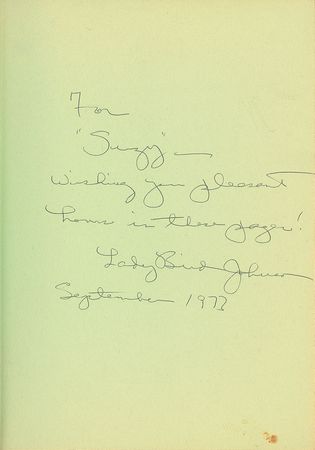 For
"Suzy" —
Wishing you pleasant
hours in these pages!
Lady Bird Johnson
September 1973